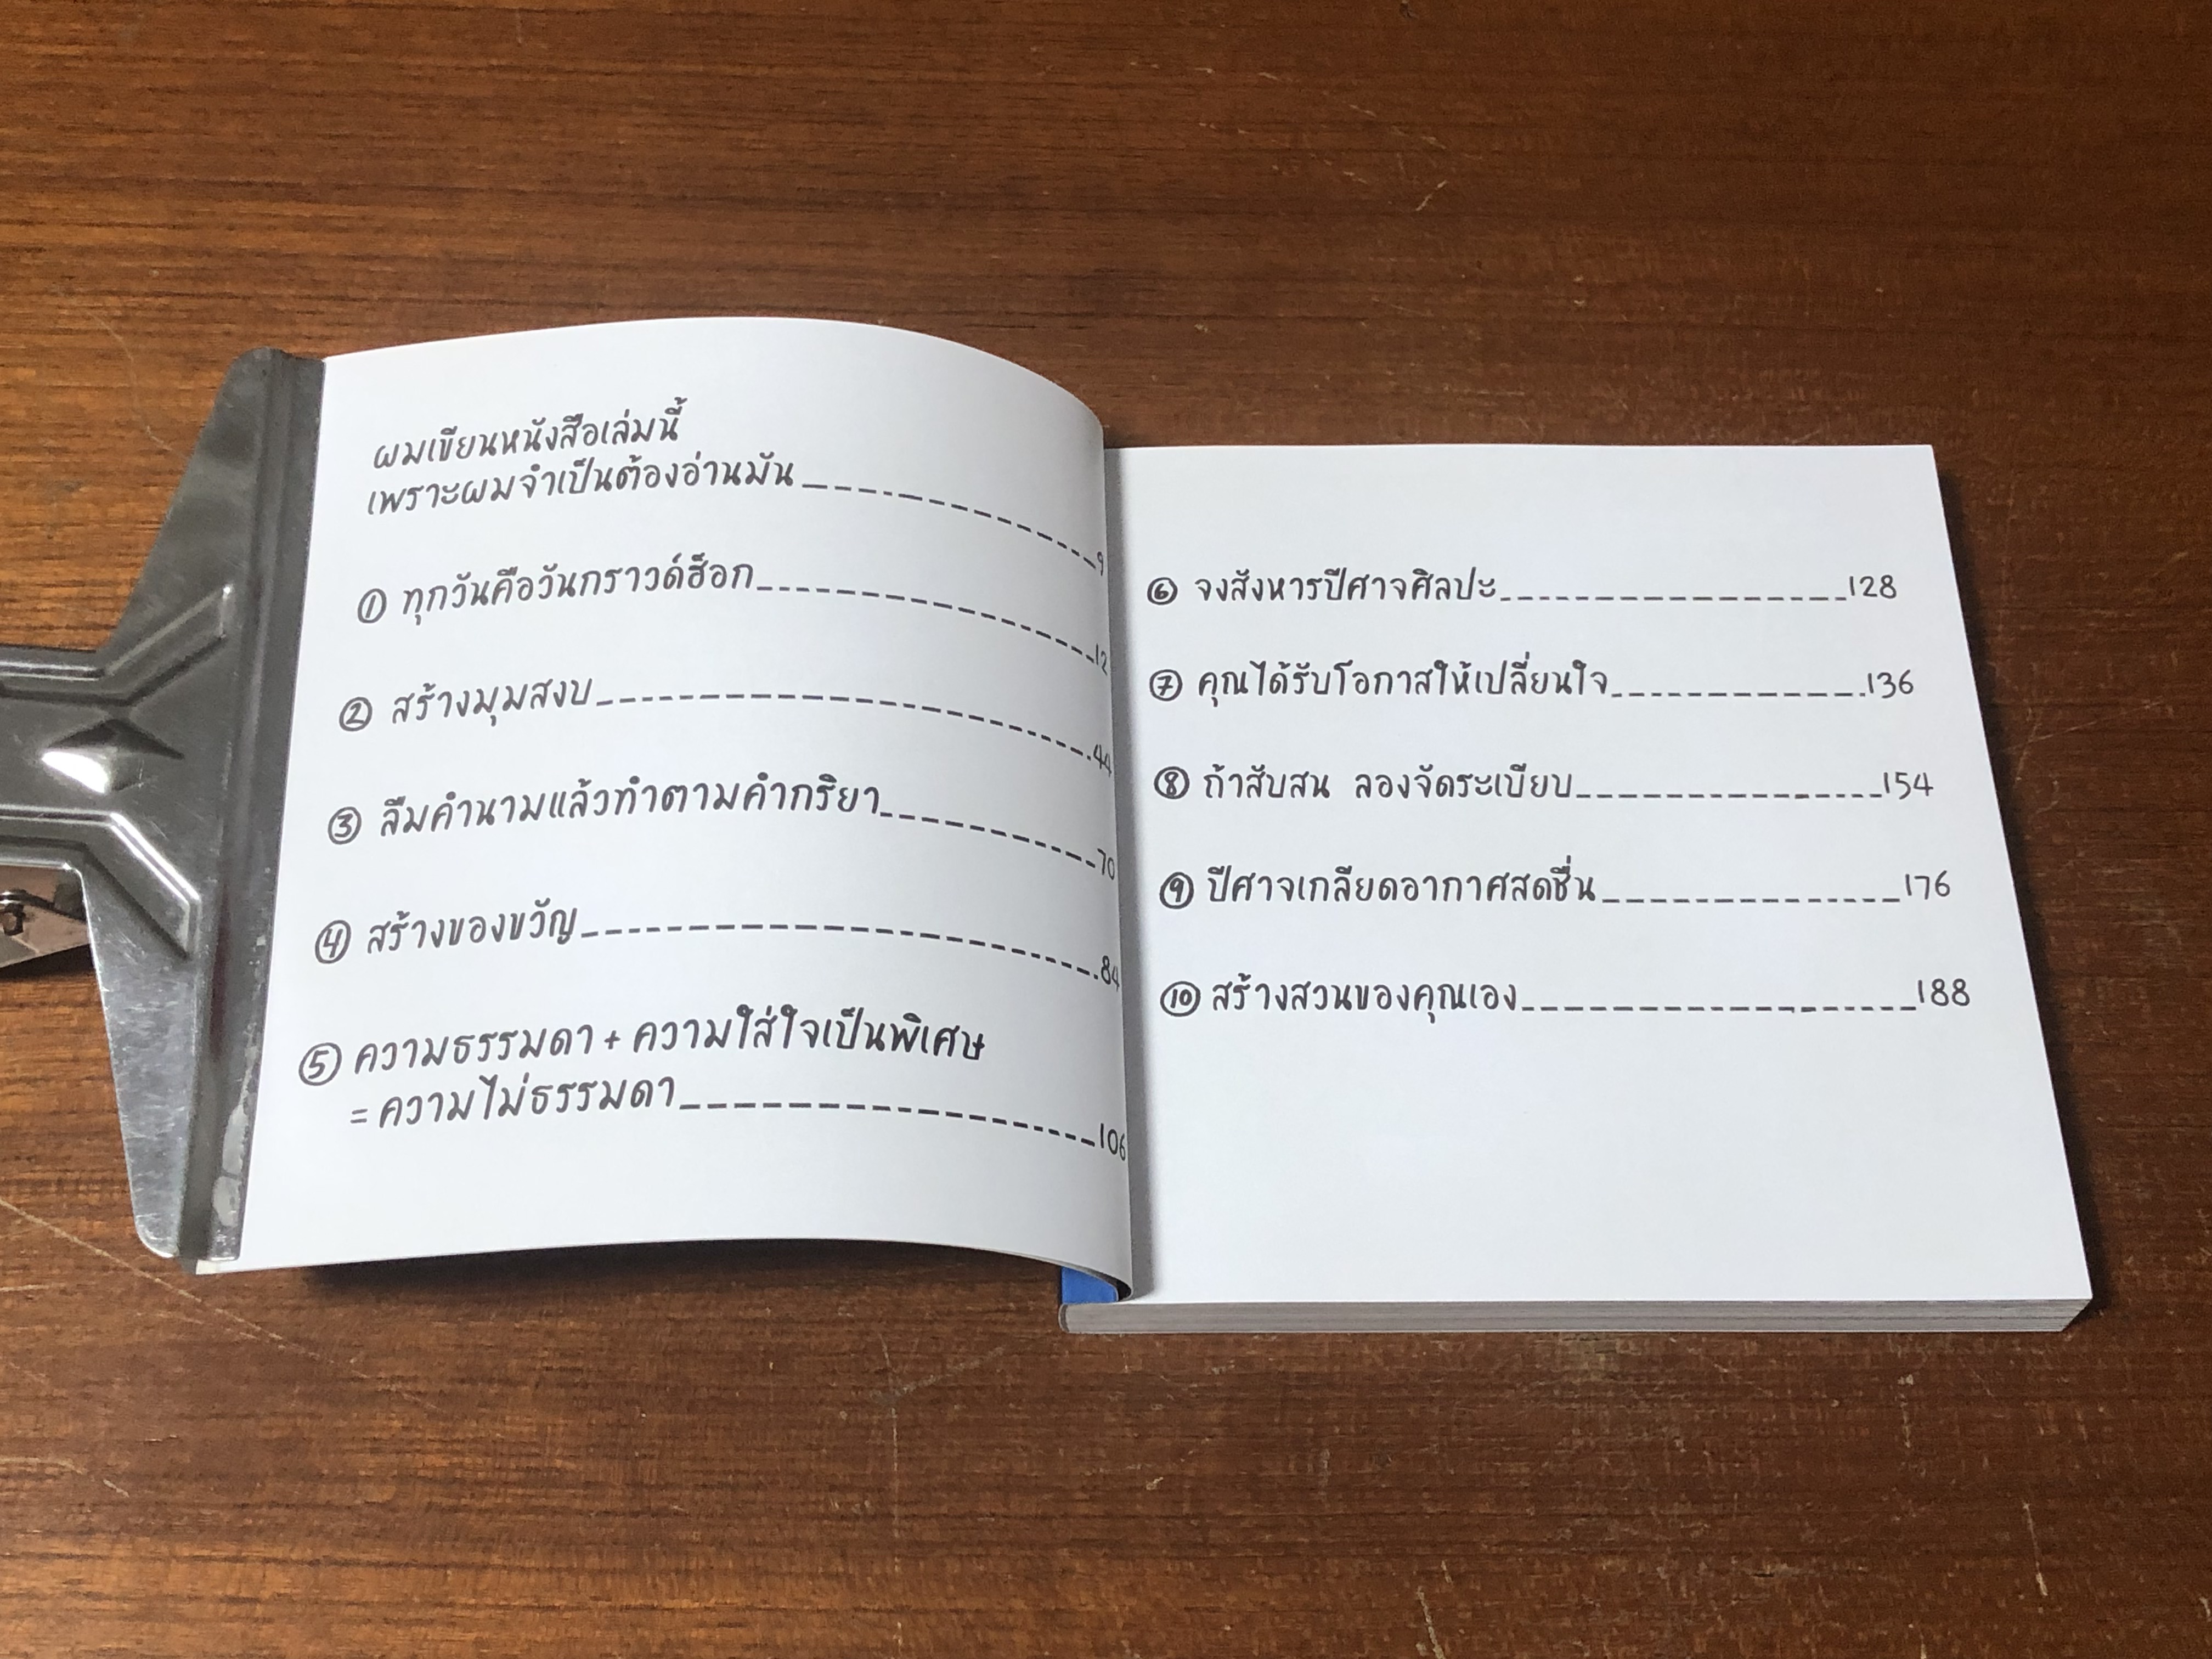 ผมเขียนหนังสือเล่มนี้
เพราะผมจำเป็นต้องอ่านมัน 9
① ทุกวันคือวันกราวด์ฮ็อก 12
② สร้างมุมสงบ 44
③ ลืมคำนามแล้วทำตามคำกริยา 70
④ สร้างของขวัญ 84
⑤ ความธรรมดา + ความใส่ใจเป็นพิเศษ
= ความไม่ธรรมดา 106
⑥ จงสังหารปีศาจศิลปะ 128
⑦ คุณได้รับโอกาสให้เปลี่ยนใจ 136
⑧ ถ้าสับสน ลองจัดระเบียบ 154
⑨ ปีศาจเกลียดอากาศสดชื่น 176
⑩ สร้างสวนของคุณเอง 188